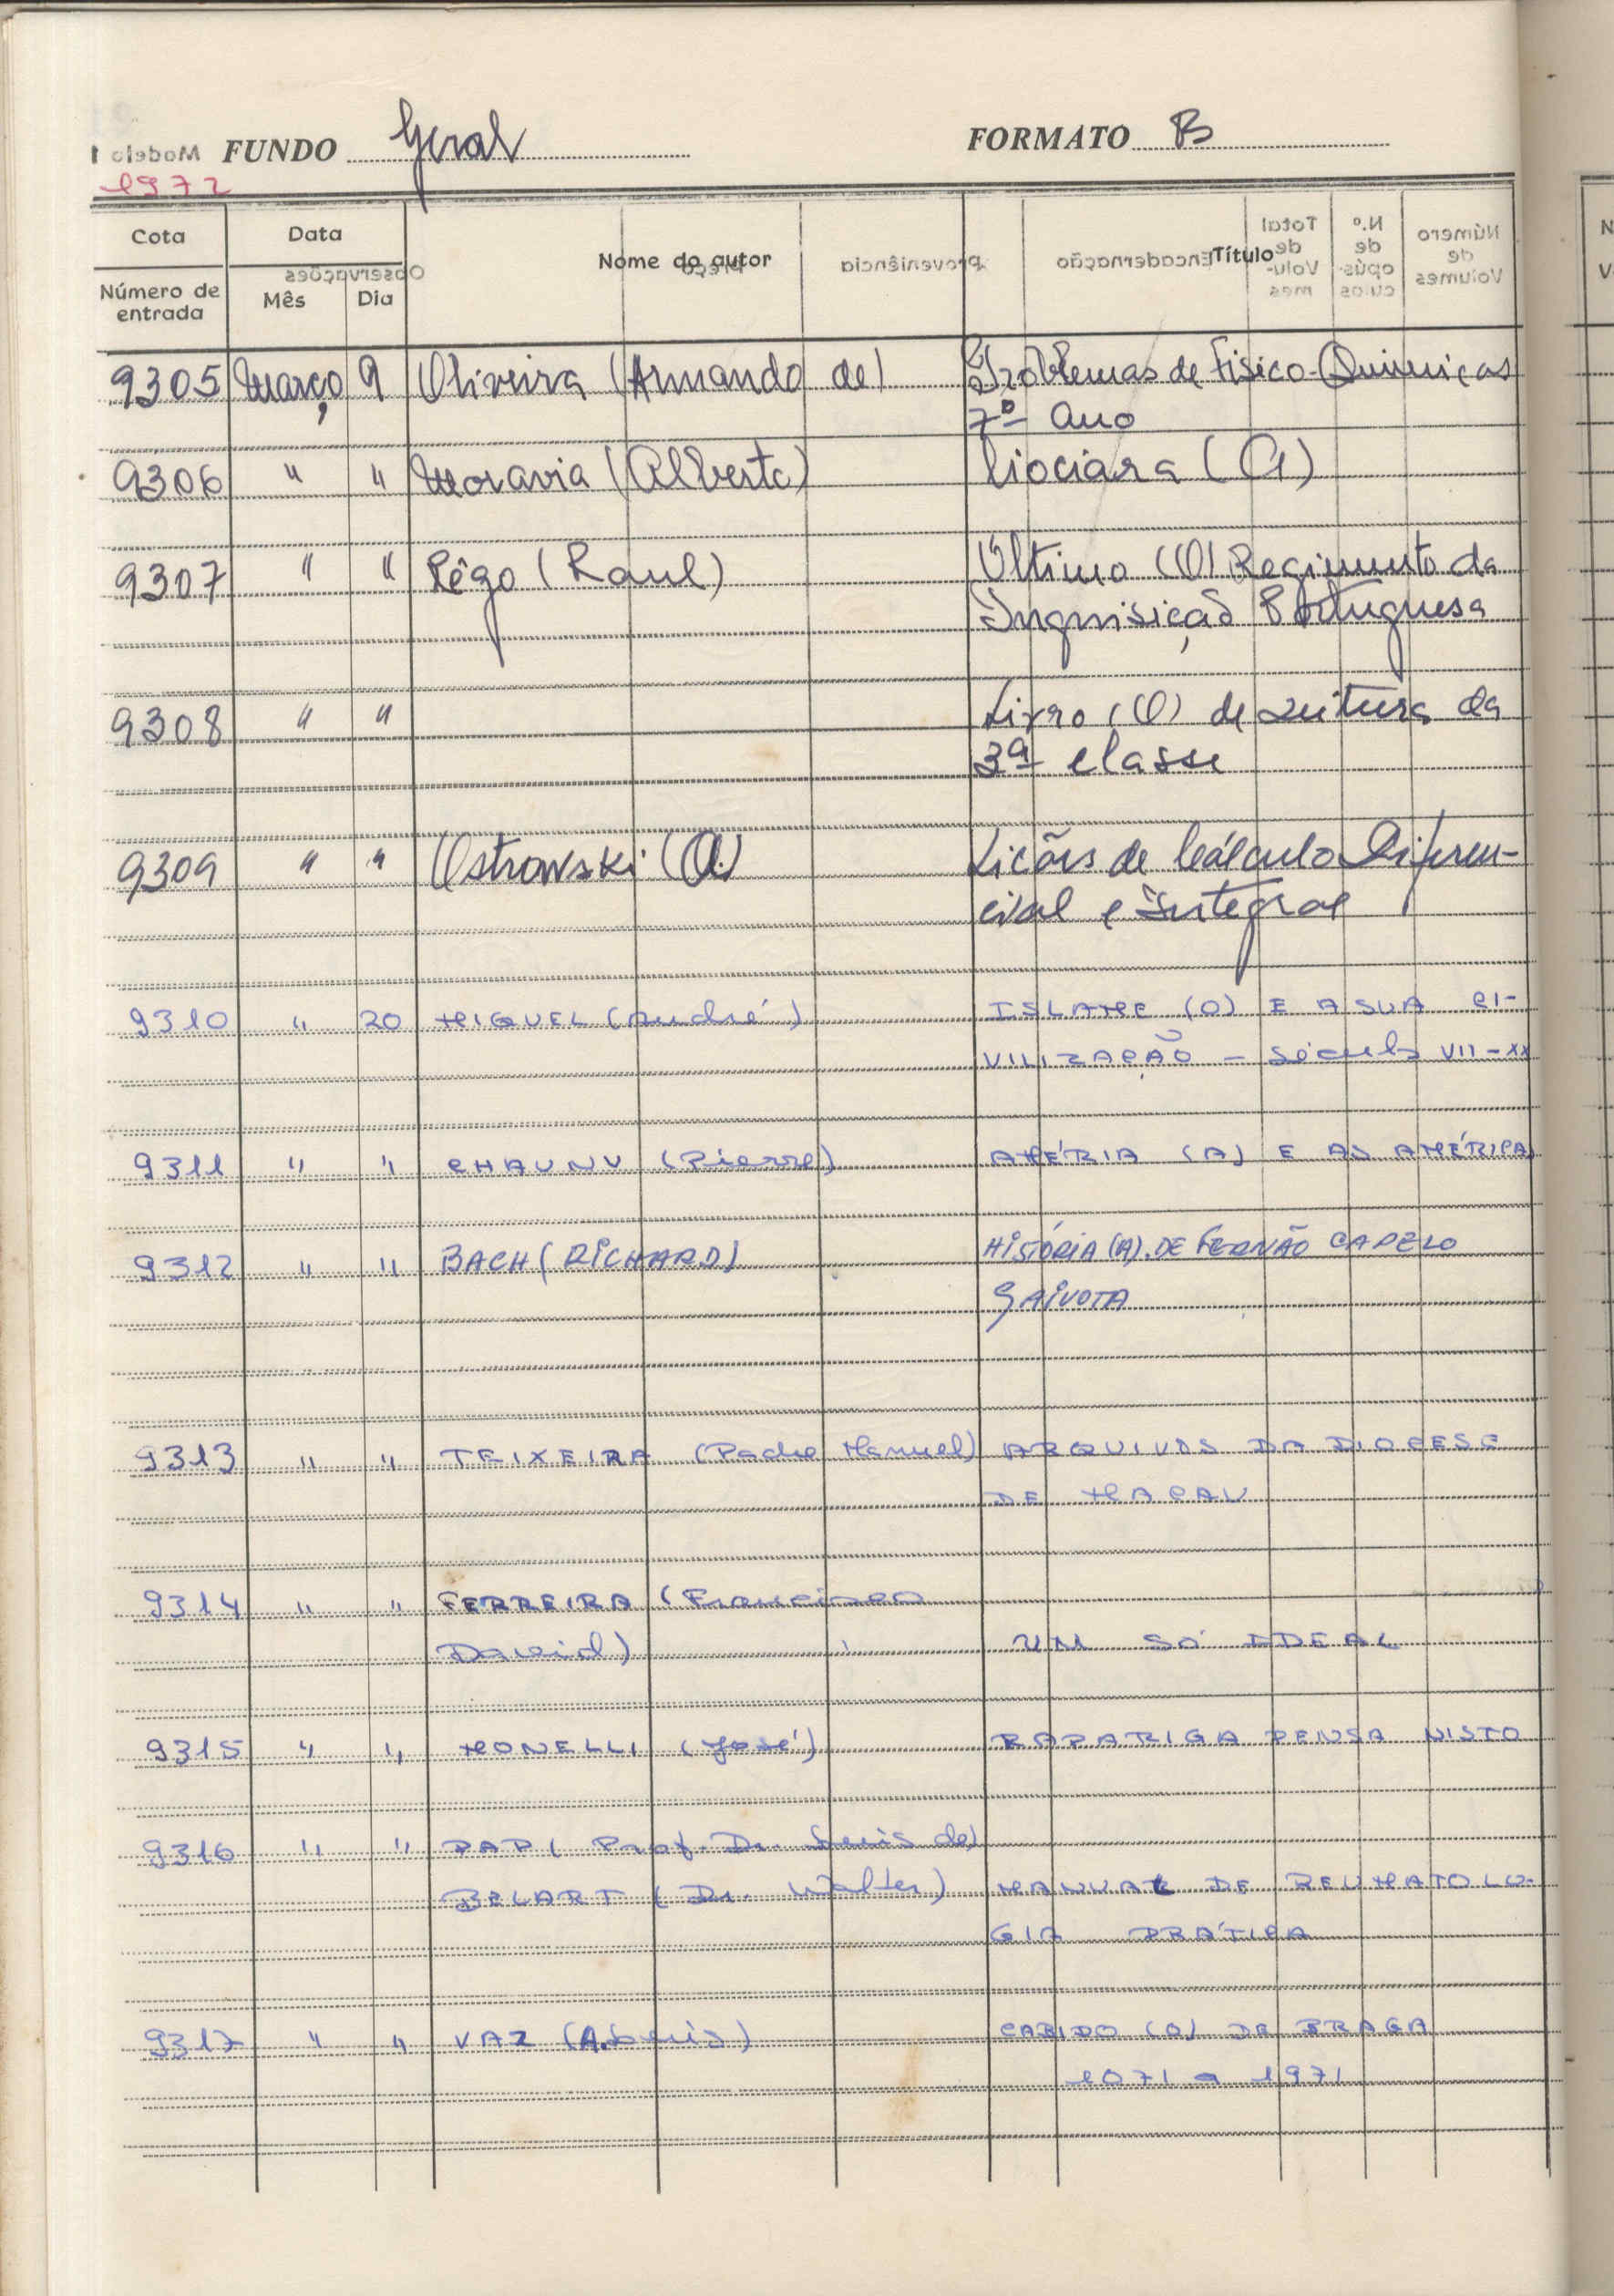 FUNDO Geral FORMATO B
Modelo 1
1972
Cota Data Nome do autor Título
Número de entrada Mês Dia
Observações Preço Proveniência Encadernação Total de Volumes N.º de opúsculos Número de Volumes
9305 Março 9 Oliveira (Armando de) Problemas de Fisico-Quimicas
7º ano
9306 " " Moravia (Alberto) Ciociara (A)
9307 " " Rêgo (Raul) Último (O) Regimento da
Inquisição Portuguesa
9308 " " Livro (O) de Leitura da
3ª classe
9309 " " Ostrowski (A.) Lições de Cálculo Diferen-
cial e Integral
9310 " 20 MIQUEL (André) ISLAME (O) E A SUA CI-
VILIZAÇÃO – Século VII-XX
9311 " " CHAUNU (Pierre) AMÉRIA (A) E AS AMÉRICAS
9312 " " BACH (RICHARD) HISTÓRIA (A) DE FERNÃO CAPELO
GAIVOTA
9313 " " TEIXEIRA (Padre Manuel) ARQUIVOS DA DIOCESE
DE MACAU
9314 " " FERREIRA (Francisco
David) UM SÓ IDEAL
9315 " " MONELLI (José) RAPARIGA PENSA NISTO
9316 " " PAP (Prof. Dr. Luis de)
BELART (Dr. Walter) MANUAL DE REUMATOLO-
GIA PRÁTICA
9317 " " VAZ (A. Luis) CABIDO (O) DE BRAGA
1071 a 1971